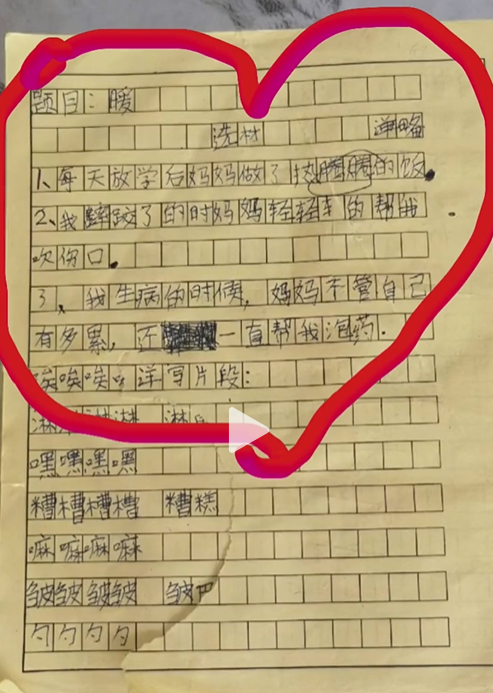 题目：暖
选材 详略
1、每天放学后妈妈做了热腾腾的饭。
2、我踩跤了的时妈妈轻轻的帮我
吹伤口。
3、我生病的时候，妈妈不管自己
有多累，还一直帮我泡药.
唉唉唉 详写片段：
淋淋淋淋 淋
嘿嘿嘿嘿
糟糟糟糟 糟糕
嘛嘛嘛嘛
皱皱皱皱 皱巴
勺勺勺勺